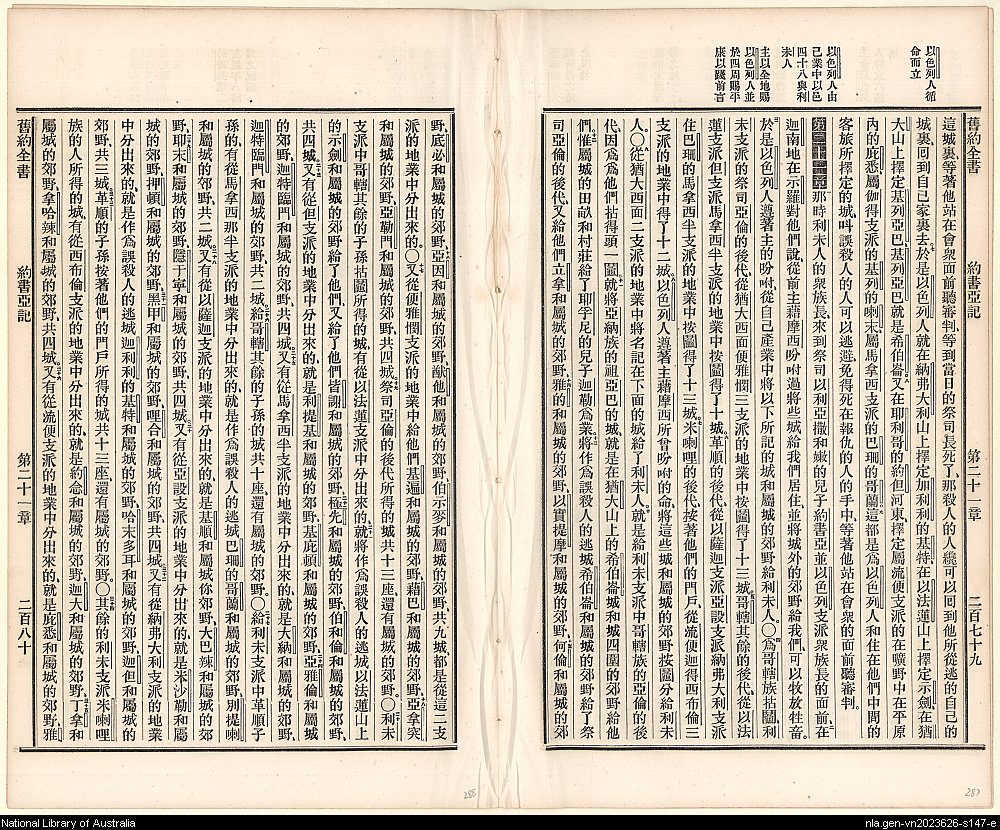 以色列人循
命而立
以色列人由
己業中以邑
四十八與利
未人
主以全地賜
以色列人並
於四周賜平
康以踐前言
舊約全書 約書亞記 第二十一章 二百七十九
這城裏、等著他站在會衆面前聽審判、等到當日的祭司長死了、那殺人的人纔可以囘到他所從逃的自己的
城裏、囘到自己家裏去、於是以色列人就在納弗大利山上擇定加利利的基特、在以法蓮山上擇定示劍、在猶
大山上擇定基列亞巴、基列亞巴就是希伯崙、又在耶利哥的約但河東、擇定屬流便支派的在曠野中在平原
內的庇悉、屬伽得支派的基列的喇末、屬馬拿西支派的巴珊的哥蘭、這都是爲以色列人和住在他們中間的
客旅所擇定的城、叫誤殺人的人可以逃避、免得死在報仇的人的手中、等著他站在會衆的面前聽審判。
第二十一章 那時利未人的衆族長、來到祭司以利亞撒和嫩的兒子約書亞、並以色列支派衆族長的面前、在
迦南地在示羅對他們說、從前主藉摩西吩咐過將些城給我們居住、並將城外的郊野給我們、可以牧放牲畜。
於是以色列人遵著主的吩咐、從自己產業中將以下所記的城和屬城的郊野給利未人、〇爲哥轄族拈鬮、利
未支派的祭司亞倫的後代、從猶大西面便雅憫三支派的地業中按鬮得了十三城、哥轄其餘的後代、從以法
蓮支派但支派馬拿西半支派的地業中按鬮得了十城、革順的後代、從以薩迦支派亞設支派納弗大利支派
住巴珊的馬拿西半支派的地業中、按鬮得了十三城、米喇哩的後代按著他們的門戶、從流便迦得西布倫三
支派的地業中得了十二城、以色列人遵著主藉摩西所曾吩咐的命將這些城和屬城的郊野按鬮分給利未
人、〇從猶大西面二支派的地業中將名記在下面的城給了利未人、就是給利未支派中哥轄族亞倫的後
代、因爲他們拈得頭一鬮、就將亞納族的祖亞巴的城、就是在猶大山上的希伯崙城和城四圍的郊野給他
們、惟屬城的田畝和村莊給了耶孚尼的兒子迦勒爲業、將作爲誤殺人的逃城希伯崙和屬城的郊野給了祭
司亞倫的後代、又給他們立拿和屬城的郊野、雅的和屬城的郊野、以實提摩和屬城的郊野、何倫和屬城的郊
野、底必和屬城的郊野、亞因和屬城的郊野、猷他和屬城的郊野、伯示麥和屬城的郊野、共九城、都是從這二支
派的地業中分出來的、〇又從便雅憫支派的地業中給他們基遍和屬城的郊野、藉巴和屬城的郊野、亞拿突
和屬城的郊野、亞勒門和屬城的郊野、共四城、祭司亞倫的後代所得的城共十三座、還有屬城的郊野。〇利未
支派中哥轄其餘的子孫拈鬮所得的城、有從以法蓮支派中分出來的、就將作爲誤殺人的逃城以法蓮山上
的示劍和屬城的郊野給了他們、又給了他們皆謝和屬城的郊野、極先和屬城的郊野、伯和倫和屬城的郊野、
共四城、又有從但支派的地業中分出來的、就是利提基和屬城的郊野、基庇頓和屬城的郊野、亞雅倫和屬城
的郊野、迦特臨門和屬城的郊野、共四城、又有從馬拿西半支派的地業中分出來的、就是大納和屬城的郊野、
迦特臨門和屬城的郊野、共二城、給哥轄其餘的子孫的城共十座、還有屬城的郊野。〇給利未支派中革順子
孫的、有從馬拿西那半支派的地業中分出來的、就是作爲誤殺人的逃城巴珊的哥蘭和屬城的郊野、別提喇
和屬城的郊野、共二城、又有從以薩迦支派的地業中分出來的、就是基順和屬城你郊野、大巴辣和屬城的郊
野、耶末和屬城的郊野、隱于寧和屬城的郊野、共四城、又有從亞設支派的地業中分出來的、就是米沙勒和屬
城的郊野、押頓和屬城的郊野、黑甲和屬城的郊野、哩合和屬城的郊野、共四城、又有從納弗大利支派的地業
中分出來的、就是作爲誤殺人的逃城迦利利的基特和屬城的郊野、哈末多耳和屬城的郊野、迦但和屬城的
郊野、共三城、革順的子孫按著他們的門戶所得的城共十三座、還有屬城的郊野、〇其餘的利未支派米喇哩
族的人所得的城、有從西布倫支派的地業中分出來的、就是約念和屬城的郊野、迦大和屬城的郊野、丁拿和
屬城的郊野、拿哈辣和屬城的郊野、共四城、又有從流便支派的地業中分出來的、就是庇悉和屬城的郊野、雅
舊約全書 約書亞記 第二十一章 二百八十
288
287
National Library of Australia
nla.gen-vn2023626-s147-e